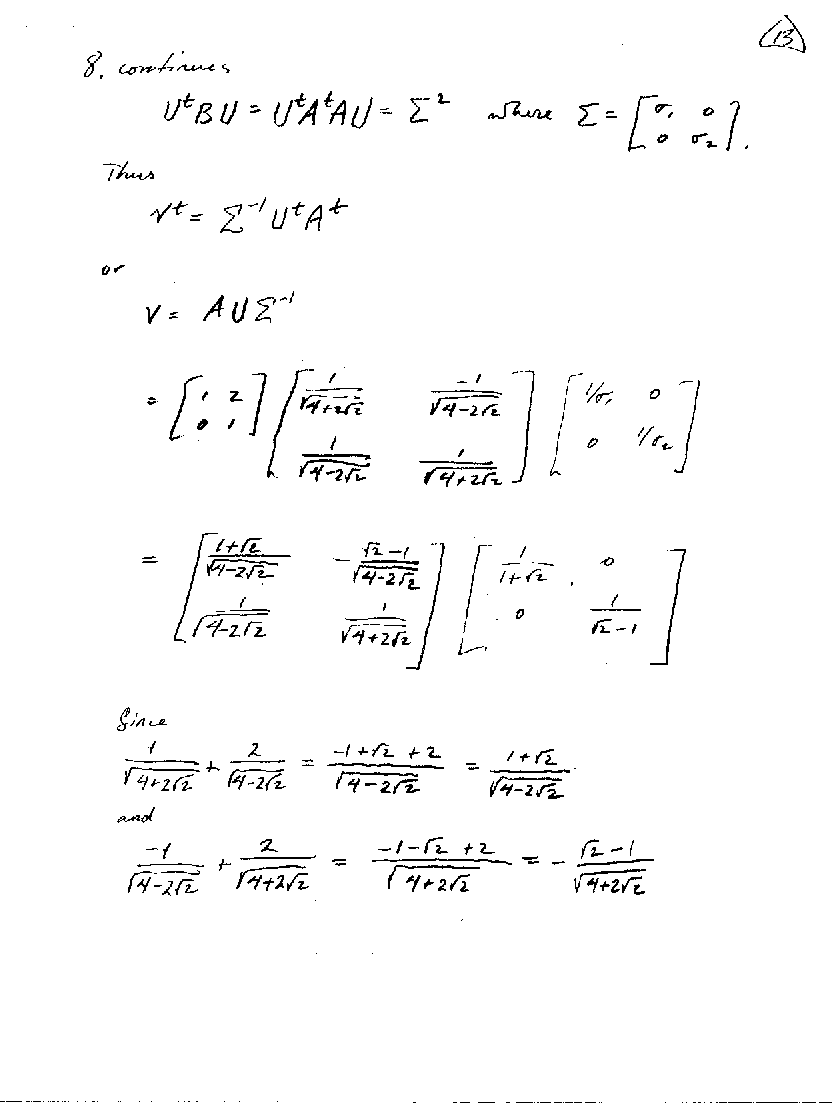 13
8. continues
UᵗBU = UᵗAᵗAU = Σ² where Σ = [σ₁ 0; 0 σ₂].
Thus
Vᵗ = Σ⁻¹UᵗAᵗ
or
V = AUΣ⁻¹
= [1 2; 0 1] [1/√(4+2√2) -1/√(4-2√2); 1/√(4-2√2) 1/√(4+2√2)] [1/σ₁ 0; 0 1/σ₂]
= [(1+√2)/√(4-2√2) -(√2-1)/√(4-2√2); 1/√(4-2√2) 1/√(4+2√2)] [1/(1+√2) 0; 0 1/(√2-1)]
Since
1/√(4+2√2) + 2/√(4-2√2) = (-1+√2+2)/√(4-2√2) = (1+√2)/√(4-2√2)
and
-1/√(4-2√2) + 2/√(4+2√2) = (-1-√2+2)/√(4+2√2) = -(√2-1)/√(4+2√2)